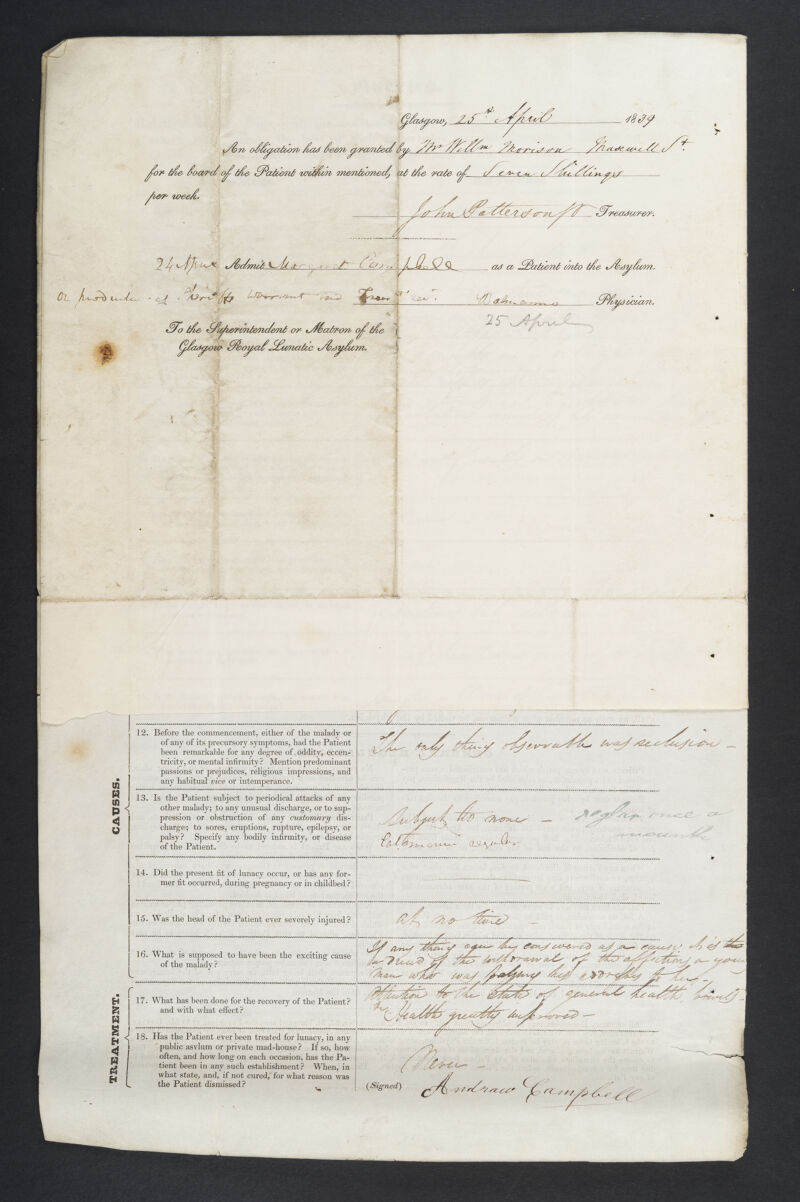 Glasgow, 25th April 1839
An obligation has been granted by Mr Willm Morison Maxwell St.
for the board of the Patient within mentioned, at the rate of Seven Shillings
per week.
John Patterson Treasurer.
24 April Admit Margaret Campbell as a Patient into the Asylum.
warrant and Physician.
25 April
To the Superintendent or Matron of the
Glasgow Royal Lunatic Asylum.
CAUSES.
12. Before the commencement, either of the malady or
of any of its precursory symptoms, had the Patient
been remarkable for any degree of oddity, eccen-
tricity, or mental infirmity? Mention predominant
passions or prejudices, religious impressions, and
any habitual vice or intemperance.
The only thing observable was seclusion –
13. Is the Patient subject to periodical attacks of any
other malady; to any unusual discharge, or to sup-
pression or obstruction of any customary dis-
charge; to sores, eruptions, rupture, epilepsy, or
palsy? Specify any bodily infirmity, or disease
of the Patient.
Subject to none – reglar once a
mounth
14. Did the present fit of lunacy occur, or has any for-
mer fit occurred, during pregnancy or in childbed?
15. Was the head of the Patient ever severely injured?
at no time –
16. What is supposed to have been the exciting cause
of the malady?
If any thing can be considered as a cause, it is the
of the withdrawal of the affections a
man who was paying his adresses to her
TREATMENT.
17. What has been done for the recovery of the Patient?
and with what effect?
Attention to the state of general health, bowels
Health greatly improved –
18. Has the Patient ever been treated for lunacy, in any
public asylum or private mad-house? If so, how
often, and how long on each occasion, has the Pa-
tient been in any such establishment? When, in
what state, and, if not cured, for what reason was
the Patient dismissed?
Never –
(Signed) Andrew Campbell